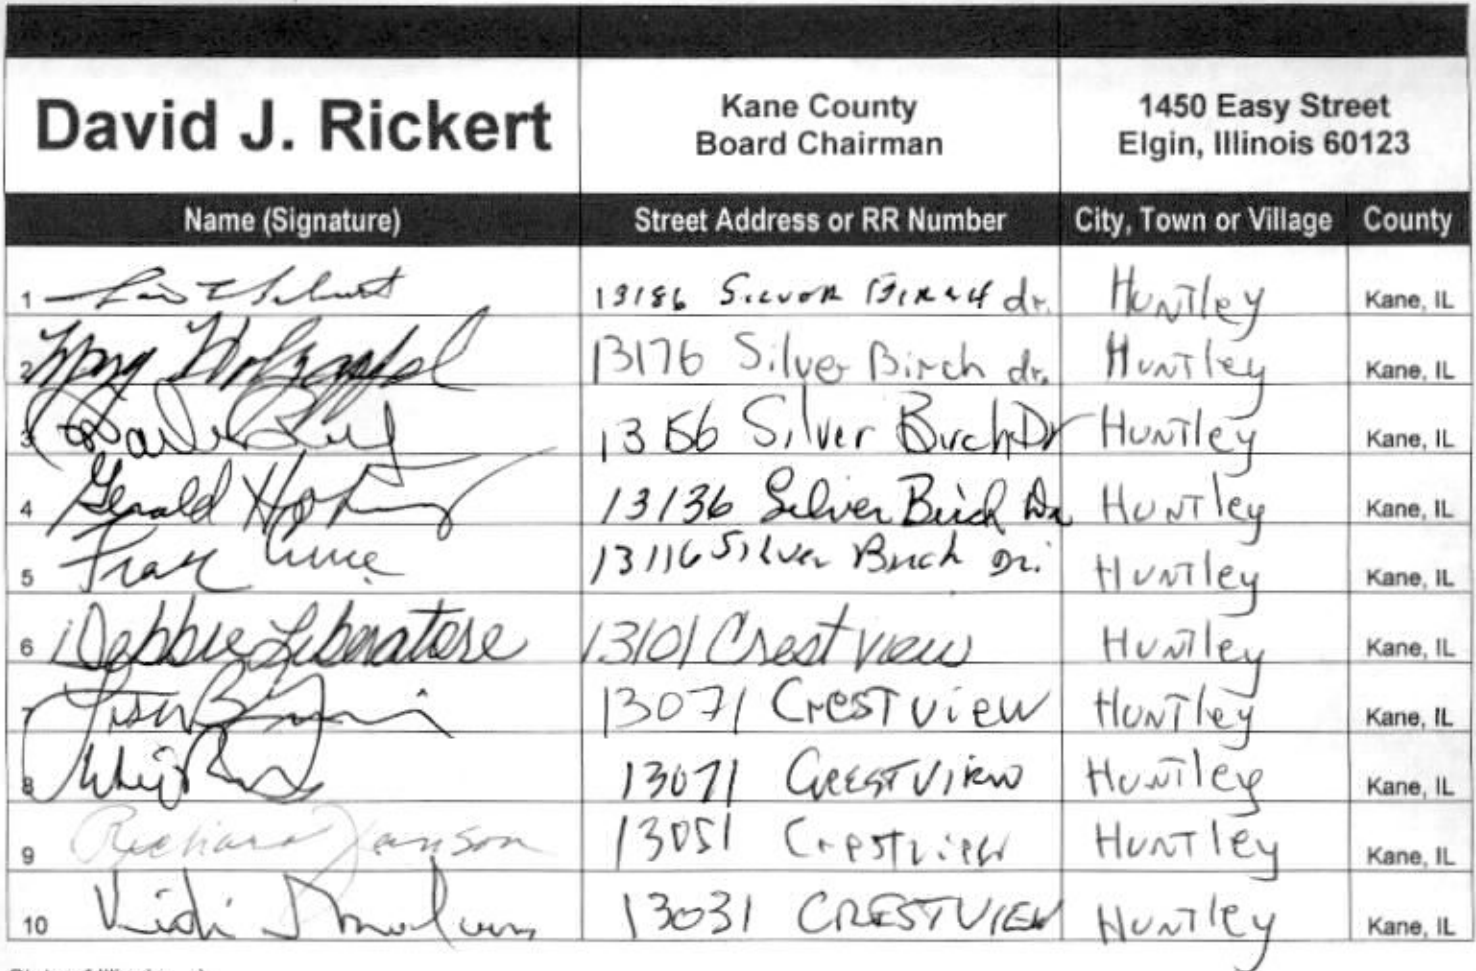 David J. Rickert
Kane County
Board Chairman
1450 Easy Street
Elgin, Illinois 60123
Name (Signature) Street Address or RR Number City, Town or Village County
1 13186 Silver Birch dr. Huntley Kane, IL
2 13176 Silver Birch dr. Huntley Kane, IL
3 13156 Silver Birch Dr Huntley Kane, IL
4 Gerald 13136 Silver Birch Dr Huntley Kane, IL
5 13116 Silver Birch Dr. Huntley Kane, IL
6 Debbie Liberatore 13101 Crestview Huntley Kane, IL
7 13071 Crestview Huntley Kane, IL
8 13071 Crestview Huntley Kane, IL
9 Richard Janson 13051 Crestview Huntley Kane, IL
10 Vicki 13031 CRESTVIEW Huntley Kane, IL